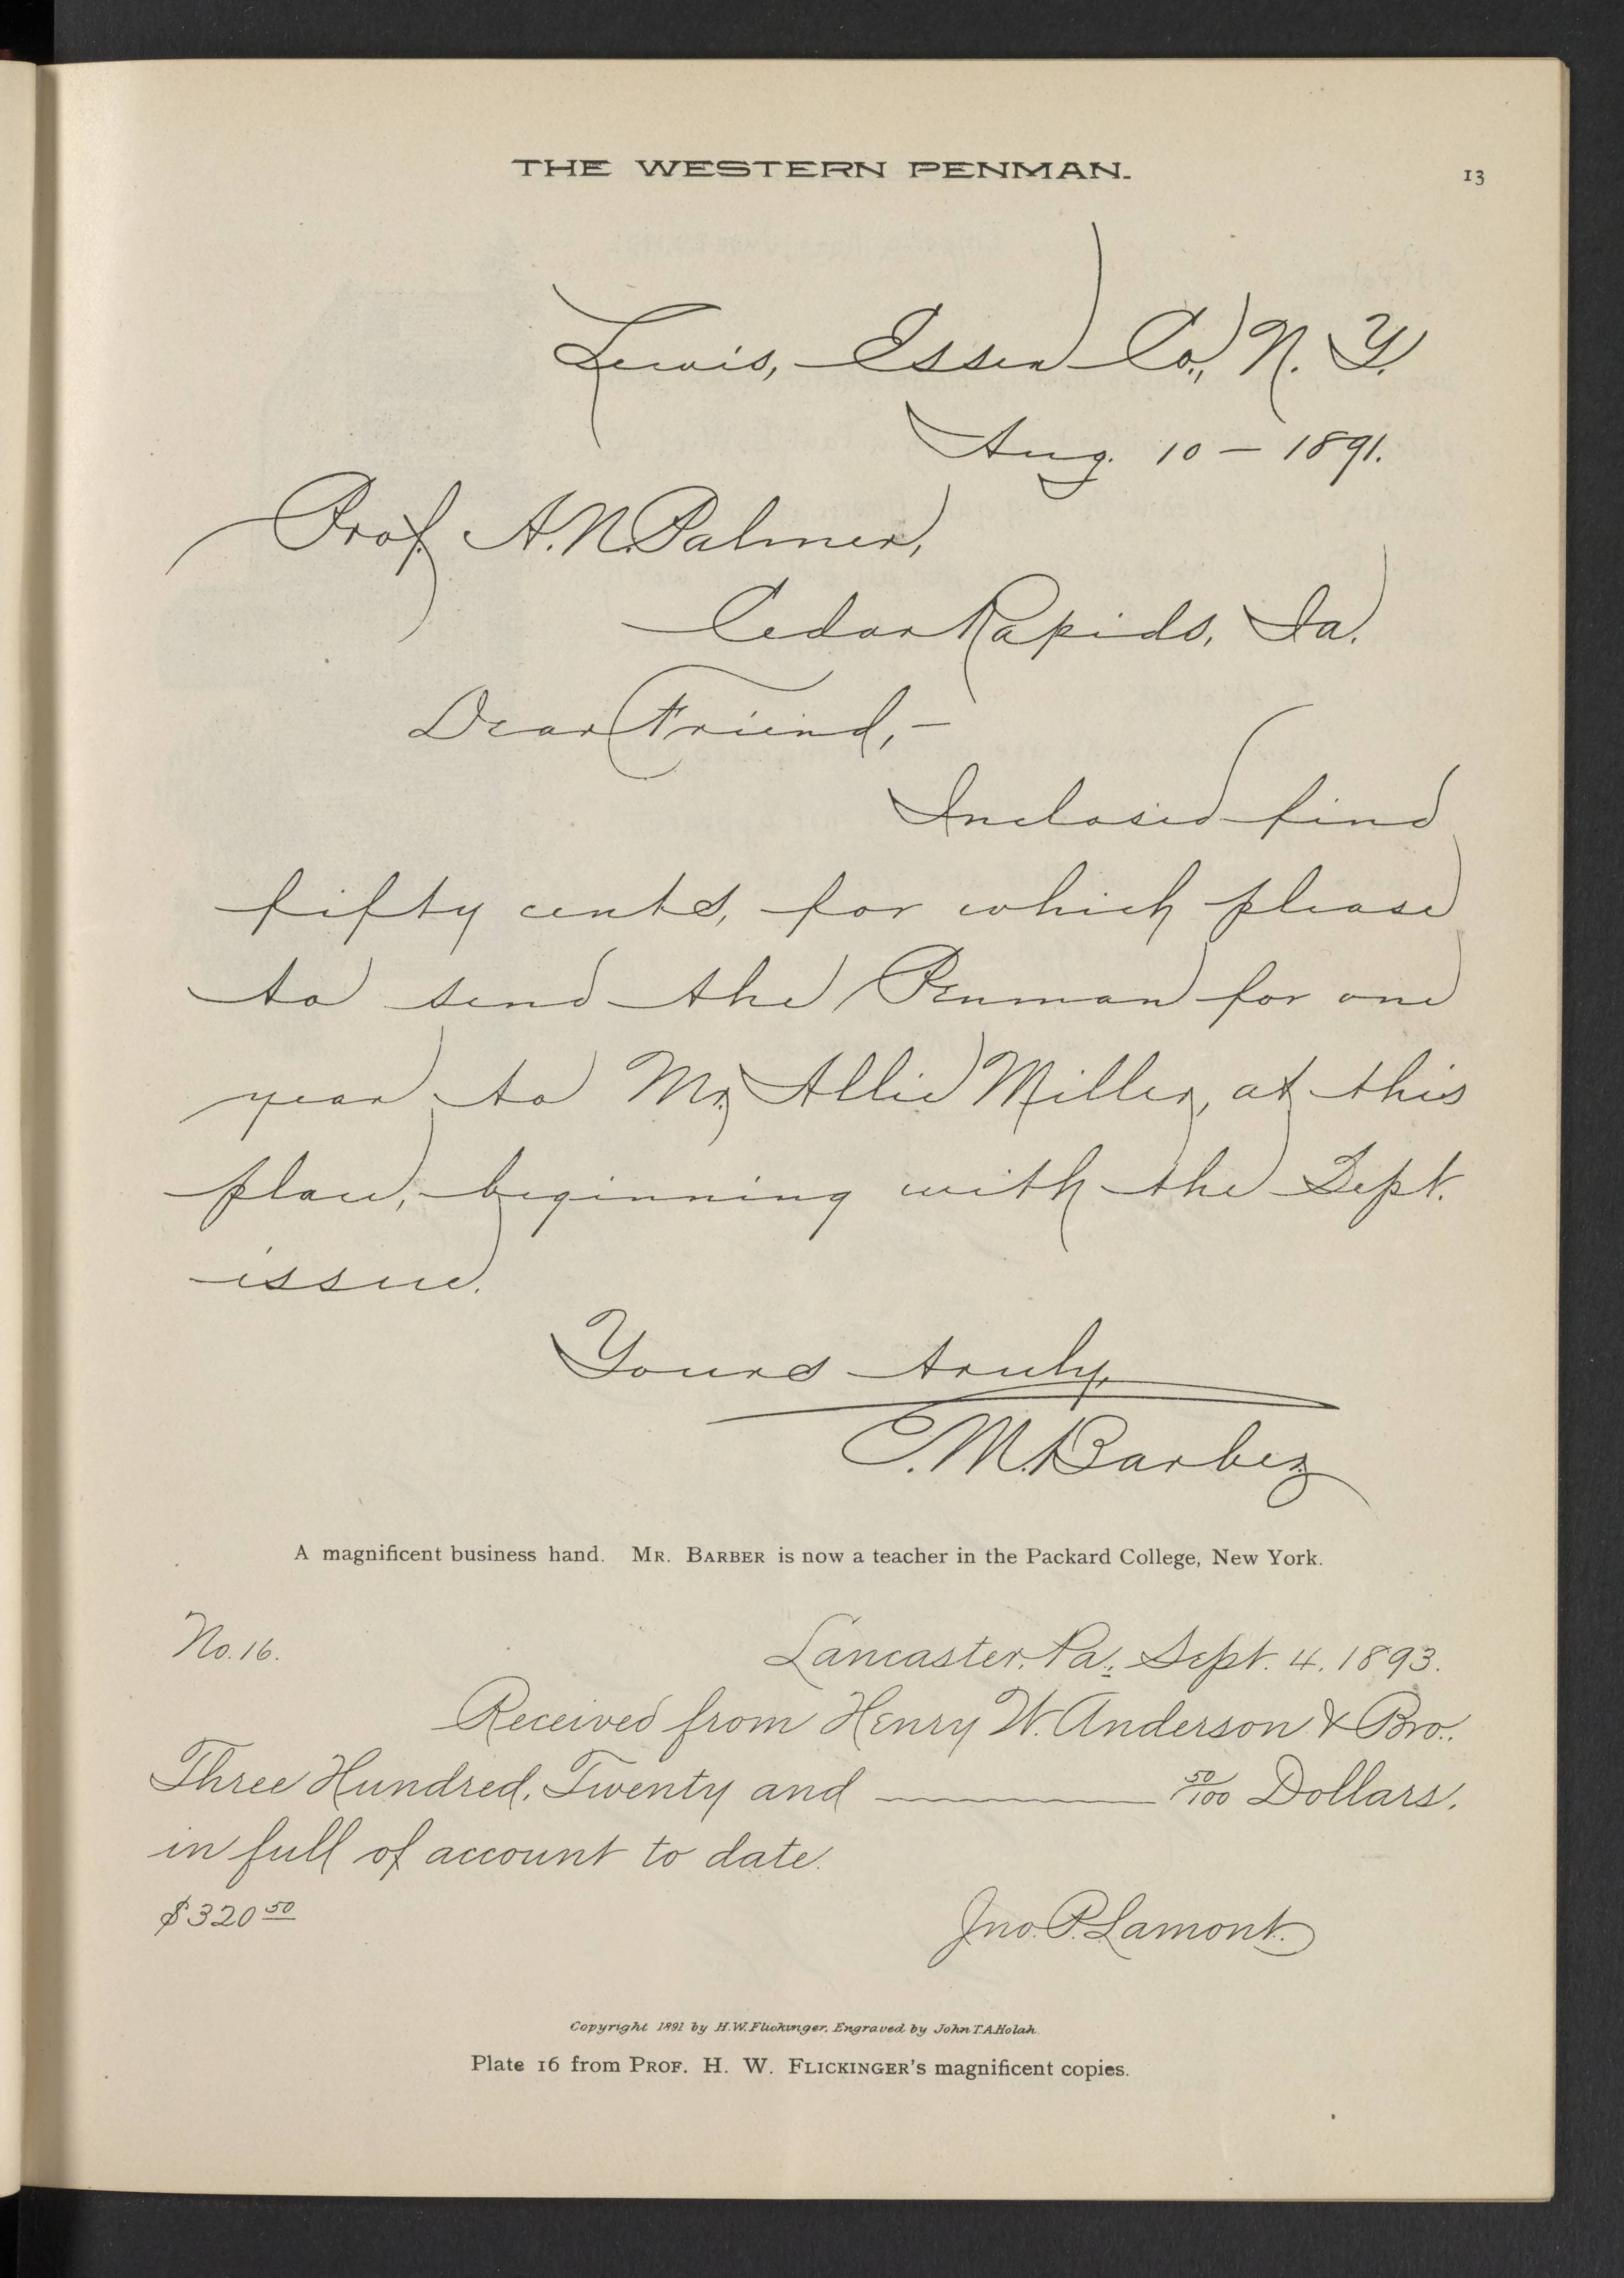 THE WESTERN PENMAN.
13
Lewis, Essex Co., N. Y.
Aug. 10 — 1891.
Prof. A. N. Palmer,
Cedar Rapids, Ia.
Dear Friend, —
Inclosed find
fifty cents, for which please
to send the Penman for one
year to Mr. Allie Miller, at this
place, beginning with the Sept.
issue.
Yours truly,
C. M. Barber
A magnificent business hand. MR. BARBER is now a teacher in the Packard College, New York.
No. 16.
Lancaster, Pa., Sept. 4, 1893.
Received from Henry W. Anderson & Bro.,
Three Hundred, Twenty and ———— 50/100 Dollars,
in full of account to date.
$320 50
Jno. P. Lamont.
Copyright 1891 by H.W.Flickinger, Engraved by John T.A.Holah.
Plate 16 from PROF. H. W. FLICKINGER'S magnificent copies.